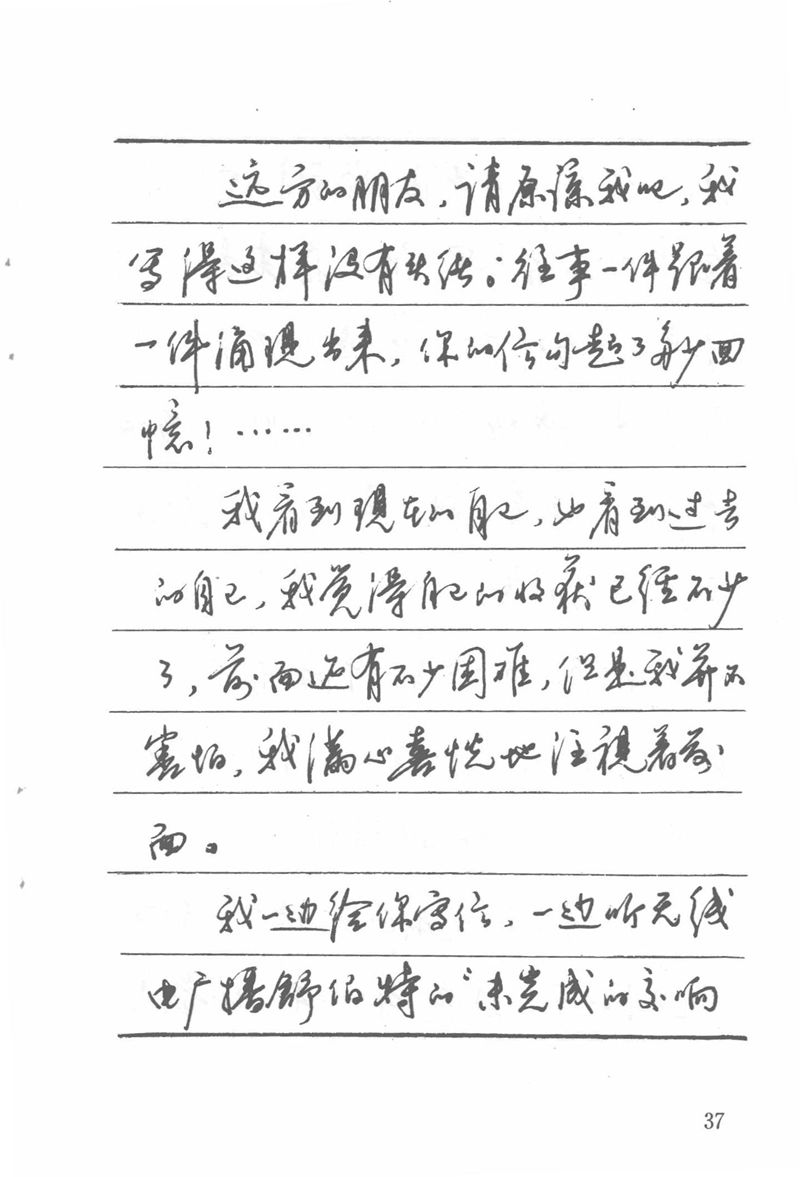 远方的朋友,请原谅我吧,我
写得这样没有头绪;往事一件跟着
一件涌现出来,你的信勾起了多少回
憶!……
我看到現在的自己,也看到过去
的自己,我觉得自己的收获已经不少
了,前面还有不少困难,但是我并不
害怕,我满心喜悦地注視着前
面。
我一边给你写信,一边听无线
电广播舒伯特的“未完成的交响
37